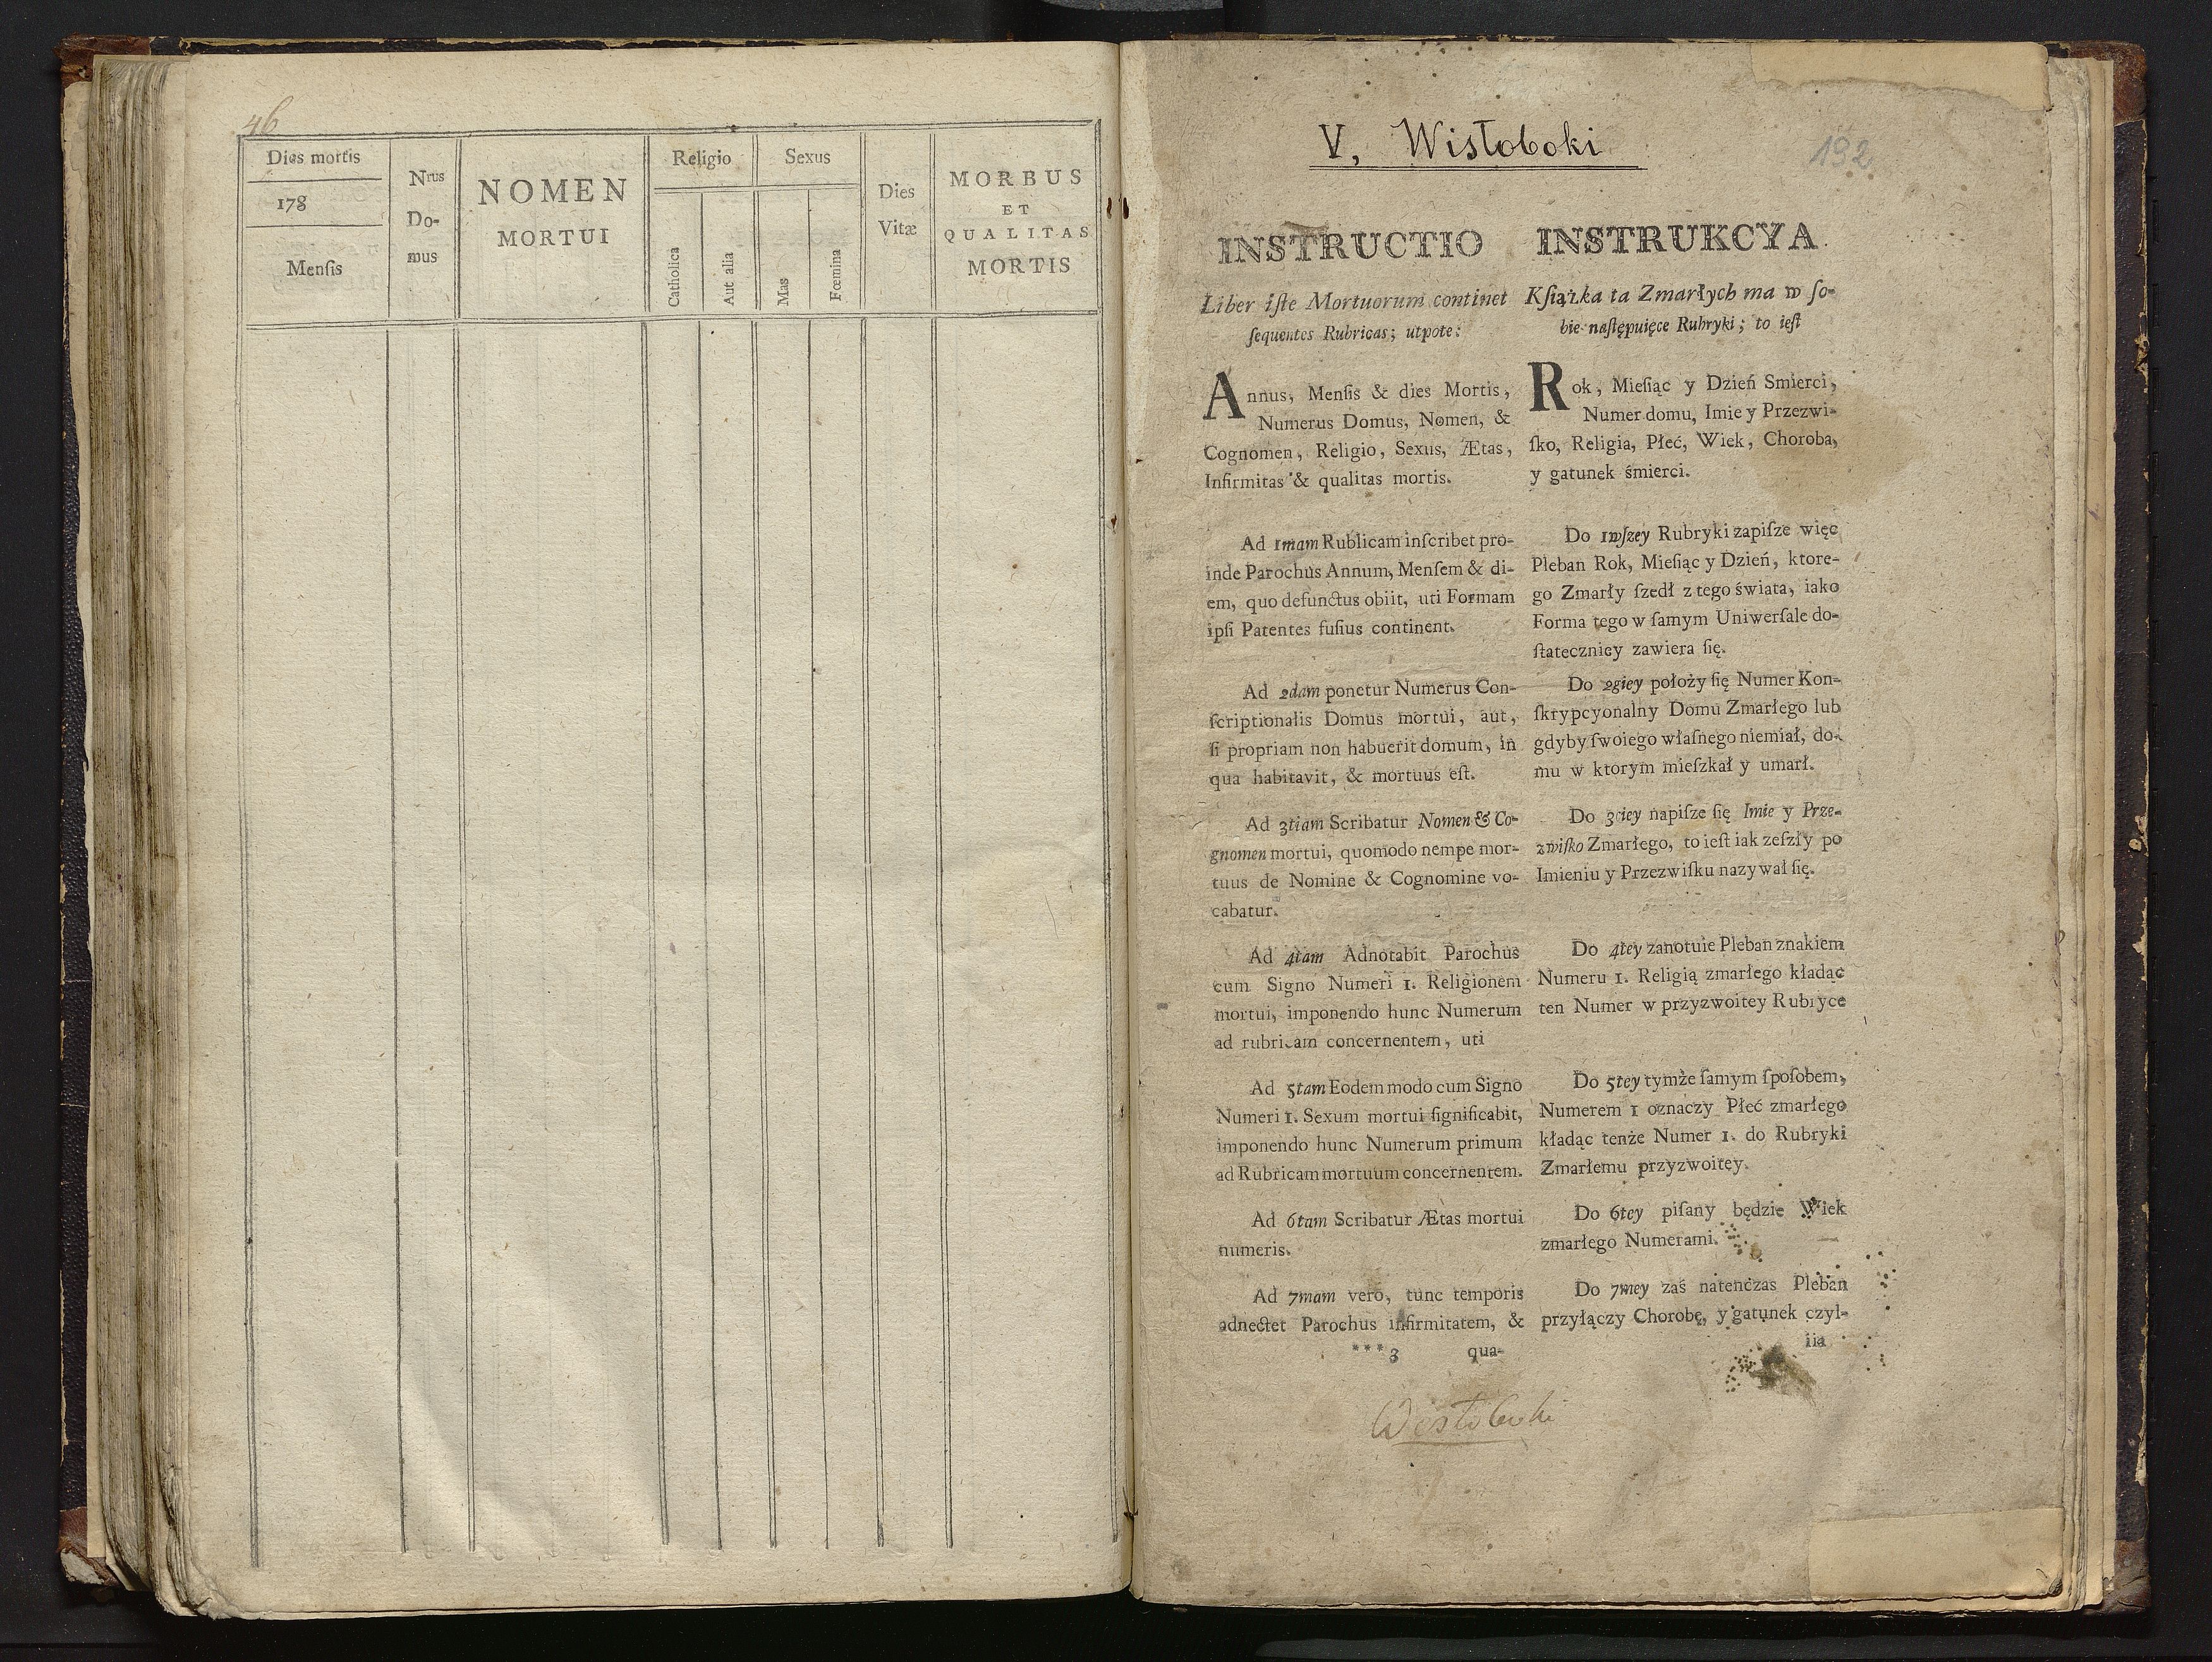 46
Dies mortis
178
Menſis
Nrus
Do-
mus
NOMEN
MORTUI
Religio
Catholica
Aut alia
Sexus
Mas
Fœmina
Dies
Vitæ
MORBUS
ET
QUALITAS
MORTIS
V, Wisłoboki
192
INSTRUCTIO
Liber iſte Mortuorum continet
ſequentes Rubricas; utpote:
Annus, Menſis & dies Mortis,
Numerus Domus, Nomen, &
Cognomen, Religio, Sexus, Ætas,
Infirmitas & qualitas mortis.
Ad 1mam Rublicam inſcribet pro-
inde Parochus Annum, Menſem & di-
em, quo defunctus obiit, uti Formam
ipſi Patentes fuſius continent.
Ad 2dam ponetur Numerus Con-
ſcriptionalis Domus mortui, aut,
ſi propriam non habuerit domum, in
qua habitavit, & mortuus eſt.
Ad 3tiam Scribatur Nomen & Co-
gnomen mortui, quomodo nempe mor-
tuus de Nomine & Cognomine vo-
cabatur.
Ad 4tam Adnotabit Parochus
cum Signo Numeri 1. Religionem
mortui, imponendo hunc Numerum
ad rubricam concernentem, uti
Ad 5tam Eodem modo cum Signo
Numeri 1. Sexum mortui ſignificabit,
imponendo hunc Numerum primum
ad Rubricam mortuum concernentem.
Ad 6tam Scribatur Ætas mortui
numeris.
Ad 7mam vero, tunc temporis
adnectet Parochus infirmitatem, &
***3 qua-
INSTRUKCYA
Kſiążka ta Zmarłych ma w ſo-
bie naſtępuięce Rubryki; to ieſt
Rok, Mieſiąc y Dzień Smierci,
Numer domu, Imie y Przezwi-
ſko, Religia, Płeć, Wiek, Choroba,
y gatunek śmierci.
Do 1wſzey Rubryki zapiſze więc
Pleban Rok, Mieſiąc y Dzień, ktore-
go Zmarły ſzedł z tego świata, iako
Forma tego w ſamym Uniwerſale do-
ſtatecznięy zawiera ſię.
Do 2giey położy ſię Numer Kon-
ſkrypcyonalny Domu Zmarłego lub
gdyby ſwoiego właſnego niemiał, do-
mu w ktorym mieſzkał y umarł.
Do 3ciey napiſze ſię Imie y Prze-
zwiſko Zmarłego, to ieſt iak zeſzły po
Imieniu y Przezwiſku nazywał ſię.
Do 4tey zanotuie Pleban znakiem
Numeru 1. Religią zmarłego kładąc
ten Numer w przyzwoitey Rubryce
Do 5tey tymże ſamym ſpoſobem,
Numerem 1 oznaczy Płeć zmarłego
kładąc tenże Numer 1. do Rubryki
Zmarłemu przyzwoitey.
Do 6tey piſany będzie Wiek
zmarłego Numerami.
Do 7mey zaś natenczas Pleban
przyłączy Chorobę, y gatunek czyl-
iia